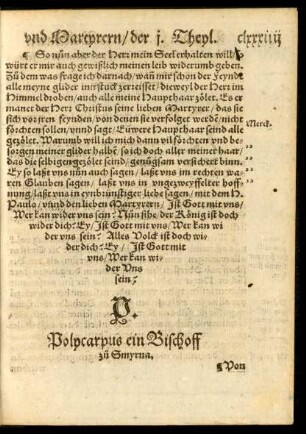 vnd Martyrern/der j. Theyl. clxxxiiij
¶ So nůn aber der Herr mein Seel erhalten will/
würt er mir auch gewißlich meinen leib widerumb geben.
Zů dem was frage ich darnach/wañ mir schon der Feynd
alle meyne glider inn stuck zerreisset/dieweyl der Herr im
Himmel droben/auch alle meine Haupthaar zölet. Es er
manet der Herr Christus seine lieben Martyrer/das sie
sich vor jren feynden/von denen sie verfolget werdē/nicht
förchten sollen/vnnd sage/Eüwere Haupthaar seind alle
gezölet. Warumb wil ich mich dann vil förchten vnd be-
sorgen meiner glider halbē/so ich doch aller meiner haar/
das die selbigen gezölet seind/genůgsam versichert binn.
Ey so laßt vns nůn auch sagen/laßt vns im rechten wa-
ren Glauben sagen/laßt vns in vngezweyffelter hoff-
nung/laßt vns in eynbrünstiger liebe sagen/mit dem H.
Paulo/vnnd den lieben Martyrern/Ist Gott mit vns/
Wer kan wider vns sein? Nůn sihe/der König ist doch
wider dich? Ey/Ist Gott mit vns/Wer kan wi
der vns sein? Alles Volck ist doch wi
der dich? Ey/Ist Gott mit
vns/Wer kan wi-
der Vns
sein?
Merck.
P.
Polycarpus ein Bischoff
zů Smyrna.
¶ Von